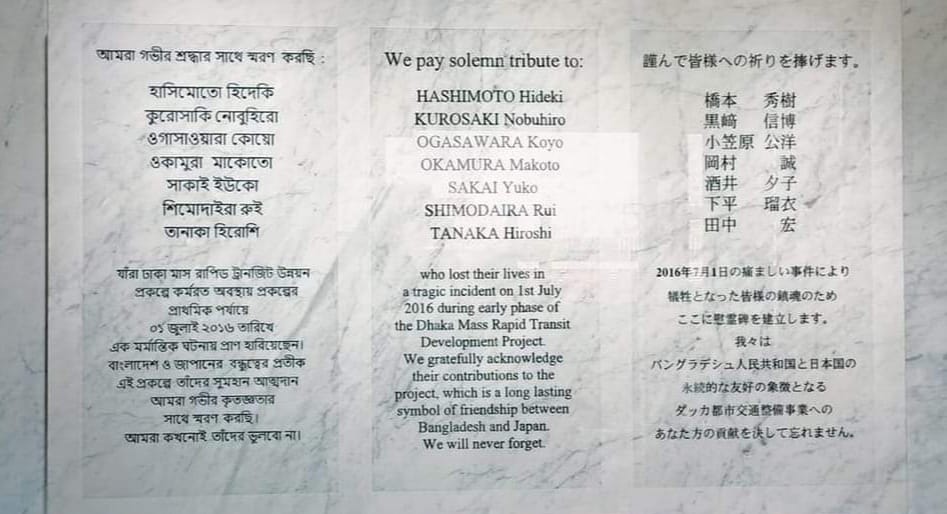 আমরা গভীর শ্রদ্ধার সাথে স্মরণ করছি :
হাসিমোতো হিদেকি
কুরোসাকি নোবুহিরো
ওগাসাওয়ারা কোয়ো
ওকামুরা মাকোতো
সাকাই ইউকো
শিমোদাইরা রুই
তানাকা হিরোশি
যাঁরা ঢাকা মাস র‍্যাপিড ট্রানজিট উন্নয়ন
প্রকল্পে কর্মরত অবস্থায় প্রকল্পের
প্রাথমিক পর্যায়ে
০১ জুলাই ২০১৬ তারিখে
এক মর্মান্তিক ঘটনায় প্রাণ হারিয়েছেন।
বাংলাদেশ ও জাপানের বন্ধুত্বের প্রতীক
এই প্রকল্পে তাঁদের সুমহান আত্মদান
আমরা গভীর কৃতজ্ঞতার
সাথে স্মরণ করছি।
আমরা কখনোই তাঁদের ভুলবো না।
We pay solemn tribute to:
HASHIMOTO Hideki
KUROSAKI Nobuhiro
OGASAWARA Koyo
OKAMURA Makoto
SAKAI Yuko
SHIMODAIRA Rui
TANAKA Hiroshi
who lost their lives in
a tragic incident on 1st July
2016 during early phase of
the Dhaka Mass Rapid Transit
Development Project.
We gratefully acknowledge
their contributions to the
project, which is a long lasting
symbol of friendship between
Bangladesh and Japan.
We will never forget.
謹んで皆様への祈りを捧げます。
橋本 秀樹
黒﨑 信博
小笠原 公洋
岡村 誠
酒井 夕子
下平 瑠衣
田中 宏
2016年7月1日の痛ましい事件により
犠牲となった皆様の鎮魂のため
ここに慰霊碑を建立します。
我々は
バングラデシュ人民共和国と日本国の
永続的な友好の象徴となる
ダッカ都市交通整備事業への
あなた方の貢献を決して忘れません。